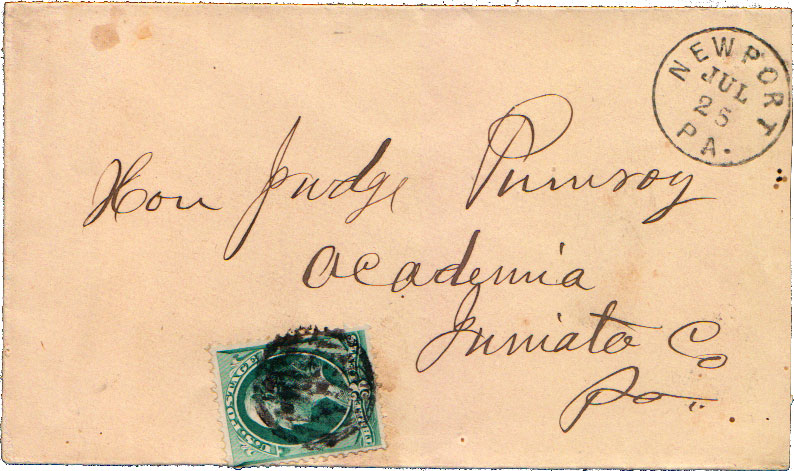 NEWPORT
JUL
25
PA.
Hon Judge Pumroy
Academia
Juniata Co
Pa.
U.S. POSTAGE